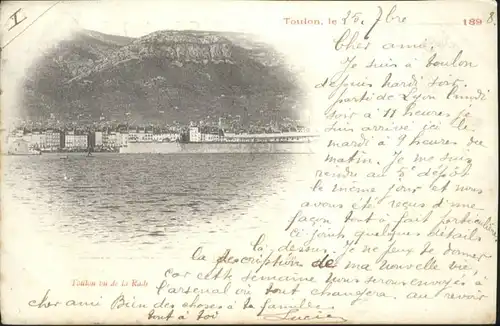 I
Toulon, le 25 7bre 1898.
Cher ami.
Je suis à Toulon
depuis mardi soir.
parti de Lyon lundi
soir à 11 heures je
suis arrivé ici le
mardi à 9 heures du
matin. Je me suis
rendu au 5e dépôt
le même jour et nous
avons été reçus d'une
façon tout à fait particulière
Ci joint quelques détails
là dessus. Je ne peux te donner
la description de ma nouvelle vie,
car cette semaine nous serons envoyés à
l'arsenal où tout changera. au revoir
cher ami Bien des choses à ta famille.
tout à toi Lucien
Toulon vu de la Rade